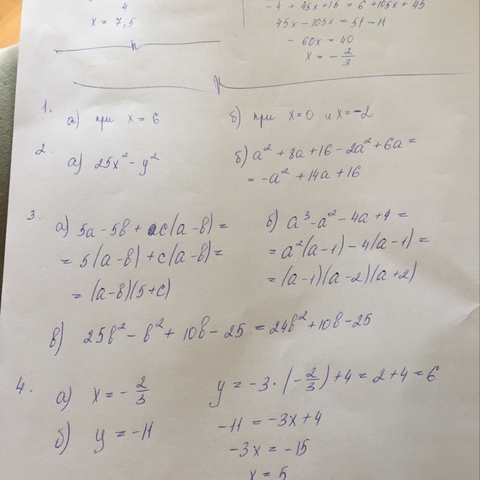 4
x = 7,5
-4 + 45x + 15 = 6 + 105x + 45
45x - 105x = 51 - 11
- 60x = 40
x = - 2/3
1.
а) при x = 6
б) при x=0 и x=-2
2.
а) 25x² - y²
б) a² + 8a + 16 - 2a² + 6a =
= -a² + 14a + 16
3.
а) 5a - 5b + c(a - b) =
= 5(a - b) + c(a - b) =
= (a - b)(5 + c)
б) a³ - a² - 4a + 4 =
= a²(a - 1) - 4(a - 1) =
= (a - 1)(a - 2)(a + 2)
в) 25b² - b² + 10b - 25 = 24b² + 10b - 25
4.
а) x = - 2/3
y = -3 · (- 2/3) + 4 = 2 + 4 = 6
б) y = -11
-11 = -3x + 4
-3x = -15
x = 5